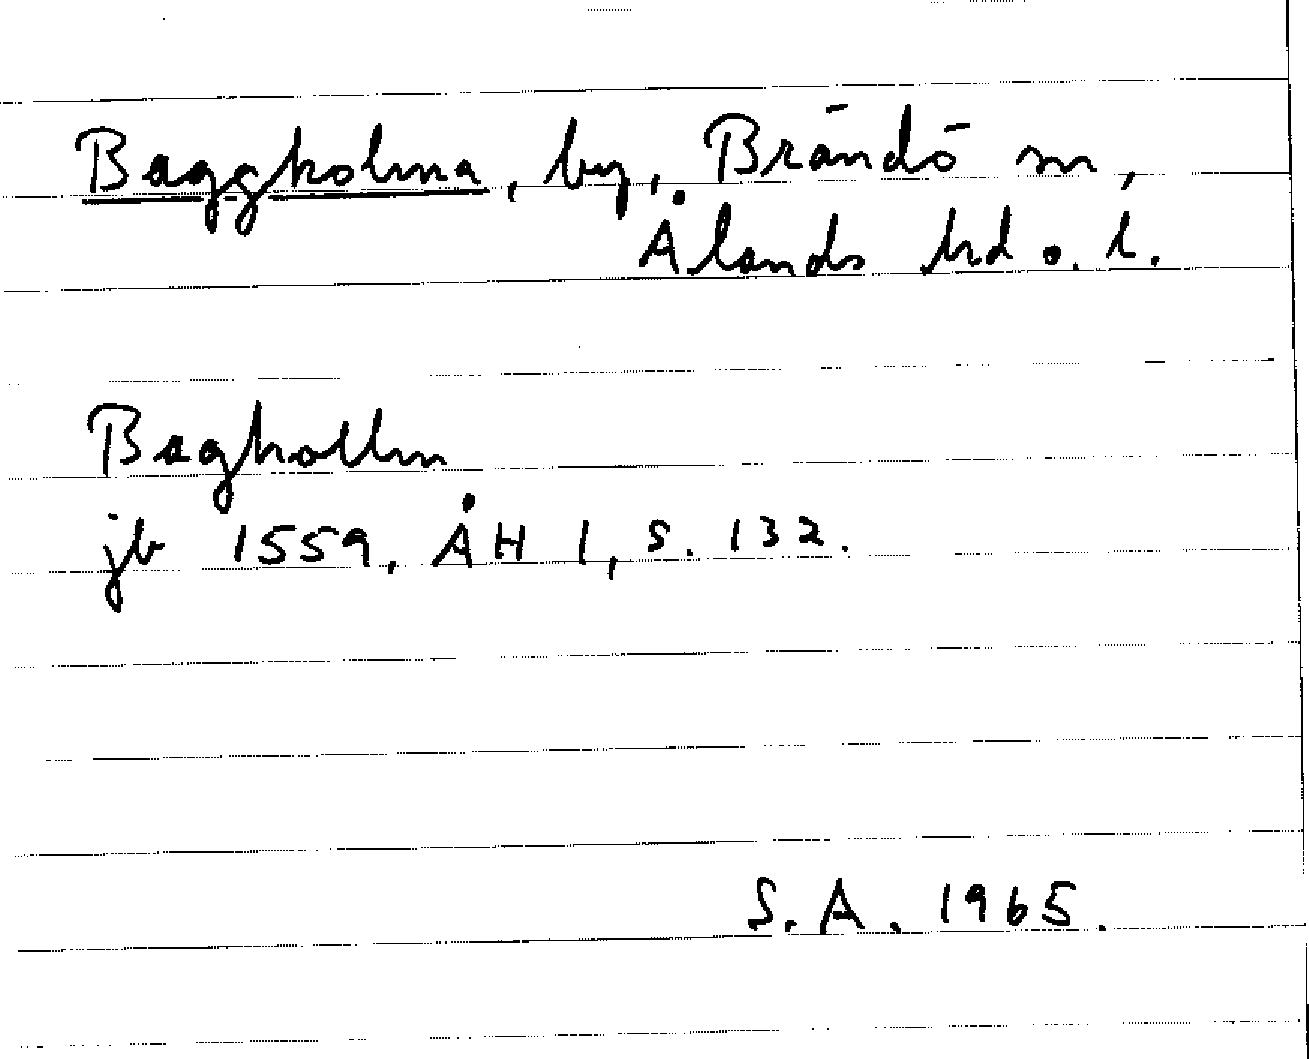 Baggholma, by, Brändö sn,
Ålands hd o. l.
Baghollm
jb 1559, ÅH 1, s. 132.
S. A. 1965.